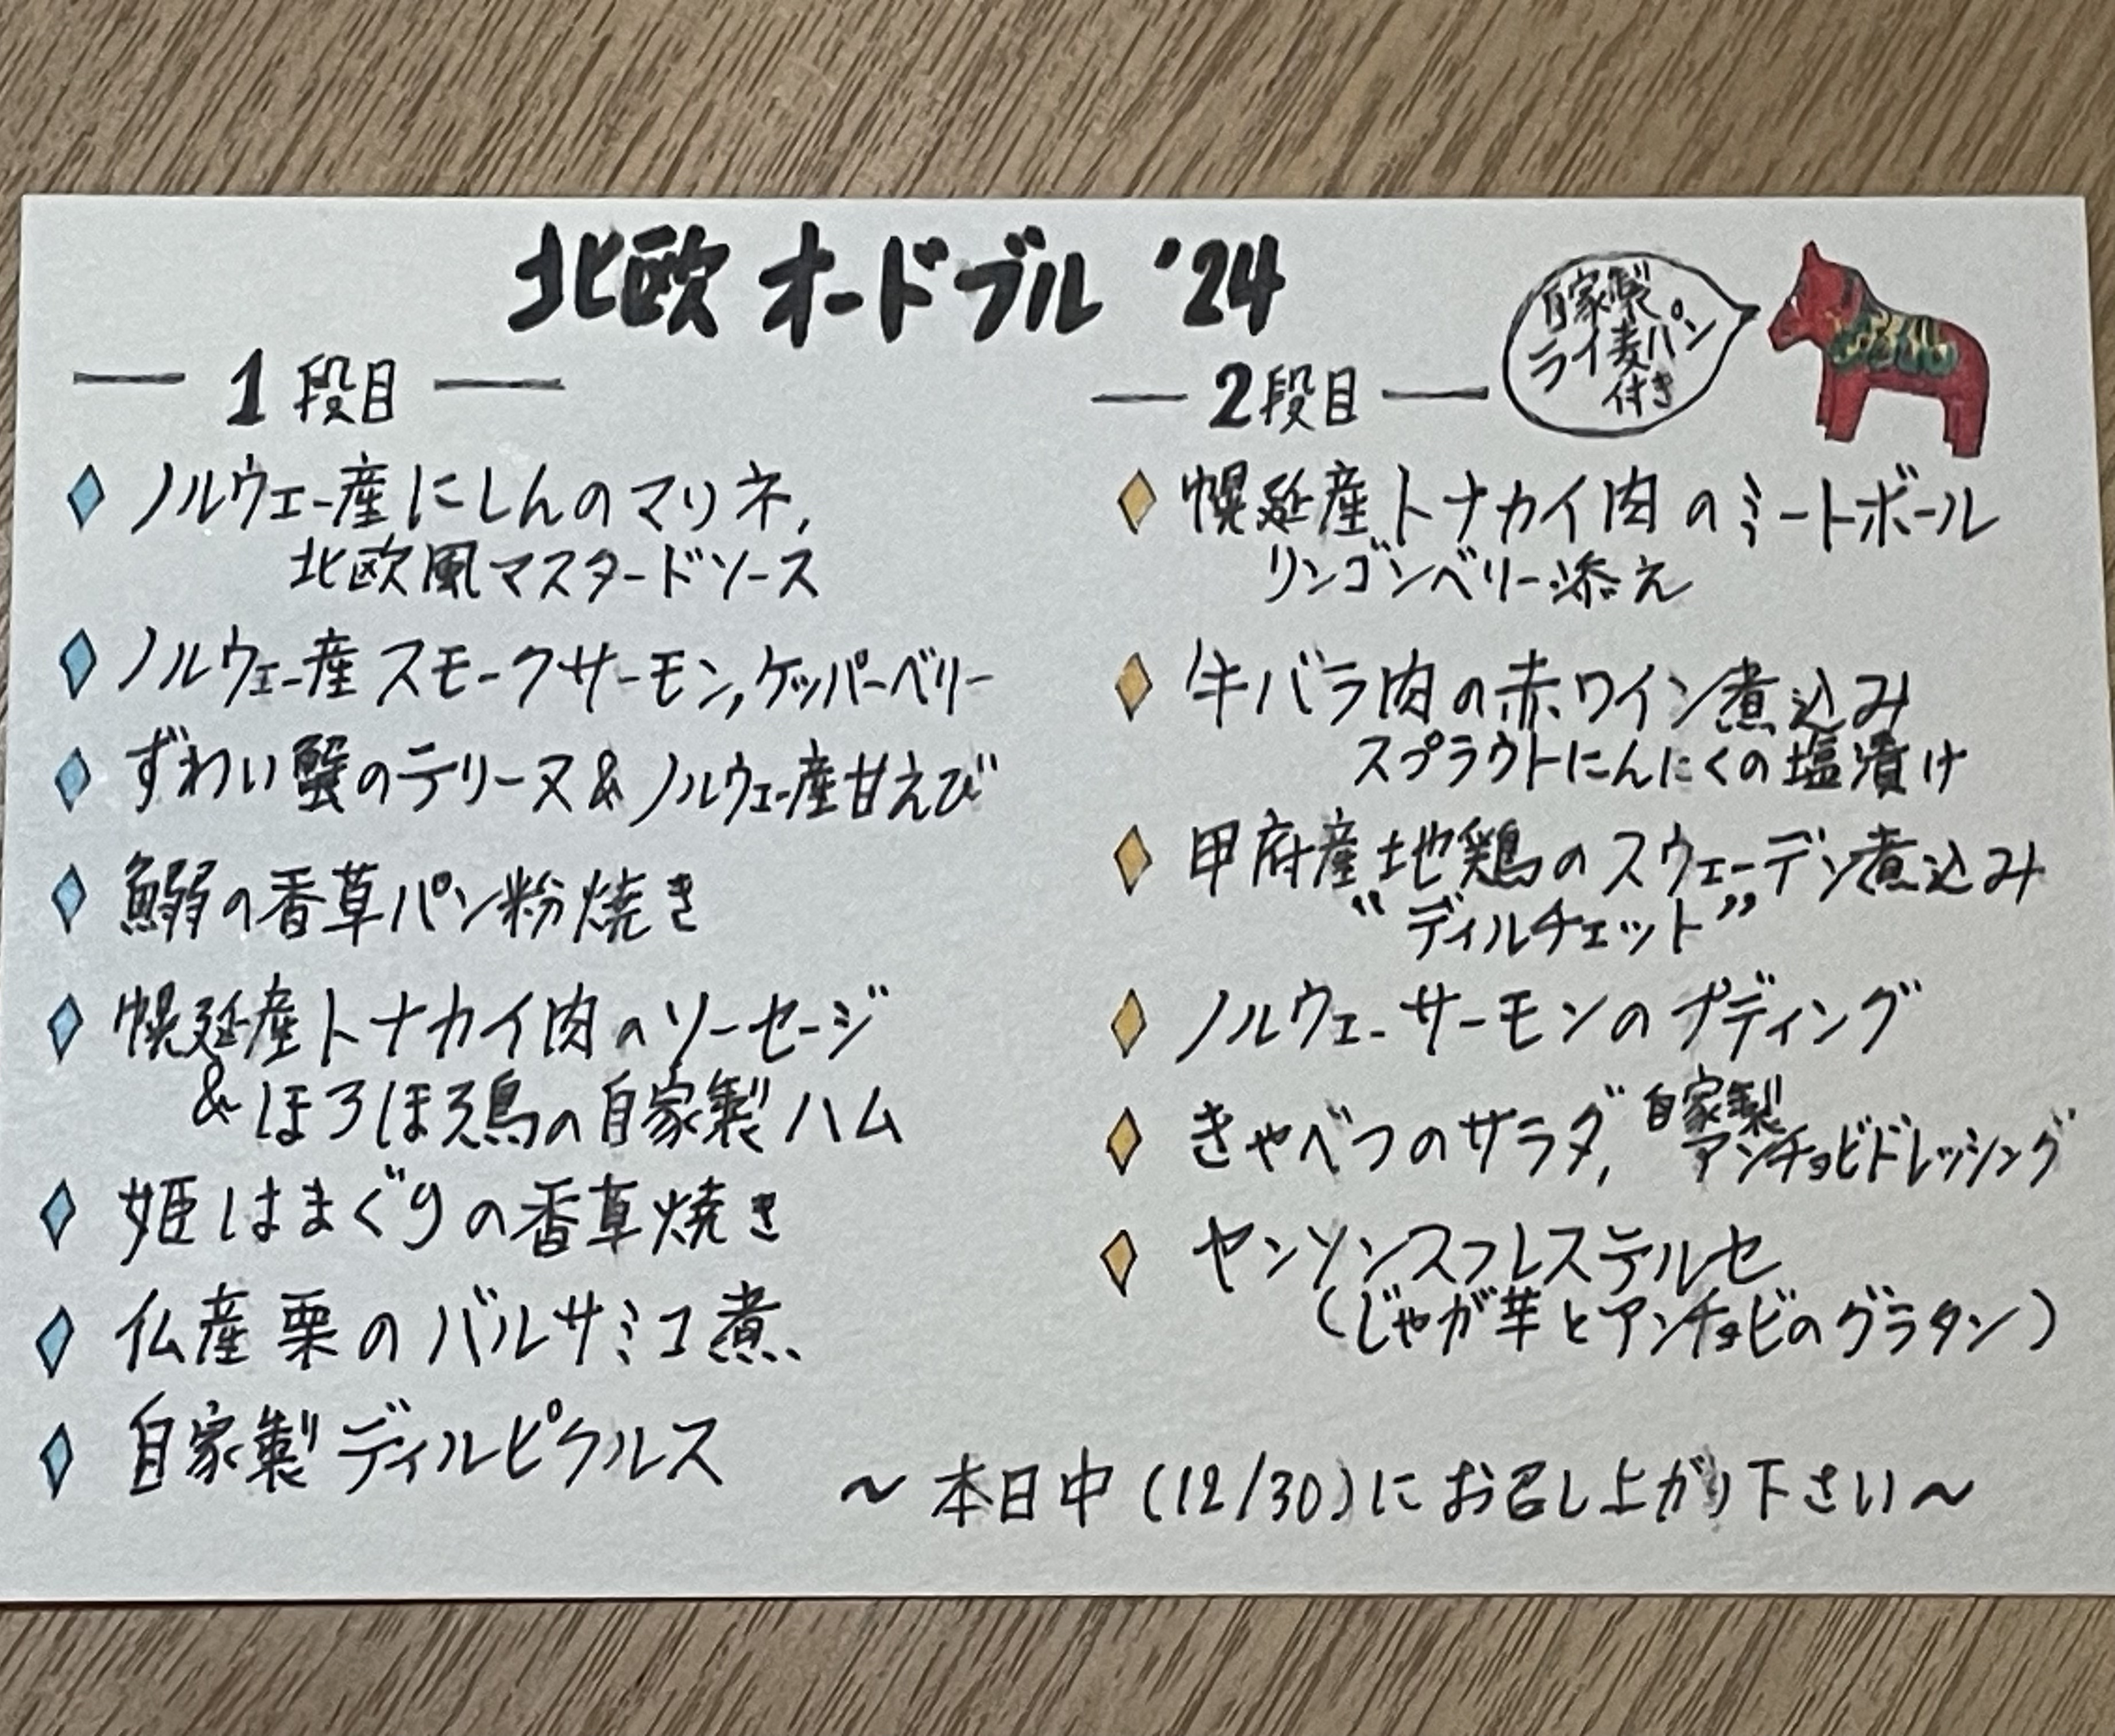 北欧オードブル '24
自家製
ライ麦パン
付き
1段目
ノルウェー産にしんのマリネ,
北欧風マスタードソース
ノルウェー産スモークサーモン,ケッパーベリー
ずわい蟹のテリーヌ&ノルウェー産甘えび
鰯の香草パン粉焼き
幌延産トナカイ肉のソーセージ
&ほろほろ鳥の自家製ハム
姫はまぐりの香草焼き
仏産栗のバルサミコ煮
自家製ディルピクルス
2段目
幌延産トナカイ肉のミートボール
リンゴンベリー添え
牛バラ肉の赤ワイン煮込み
スプラウトにんにくの塩漬け
甲府産地鶏のスウェーデン煮込み
“ディルチェット”
ノルウェーサーモンのプディング
きゃべつのサラダ, 自家製
アンチョビドレッシング
ヤンソンスフレステルセ
(じゃが芋とアンチョビのグラタン)
~本日中(12/30)にお召し上がり下さい~